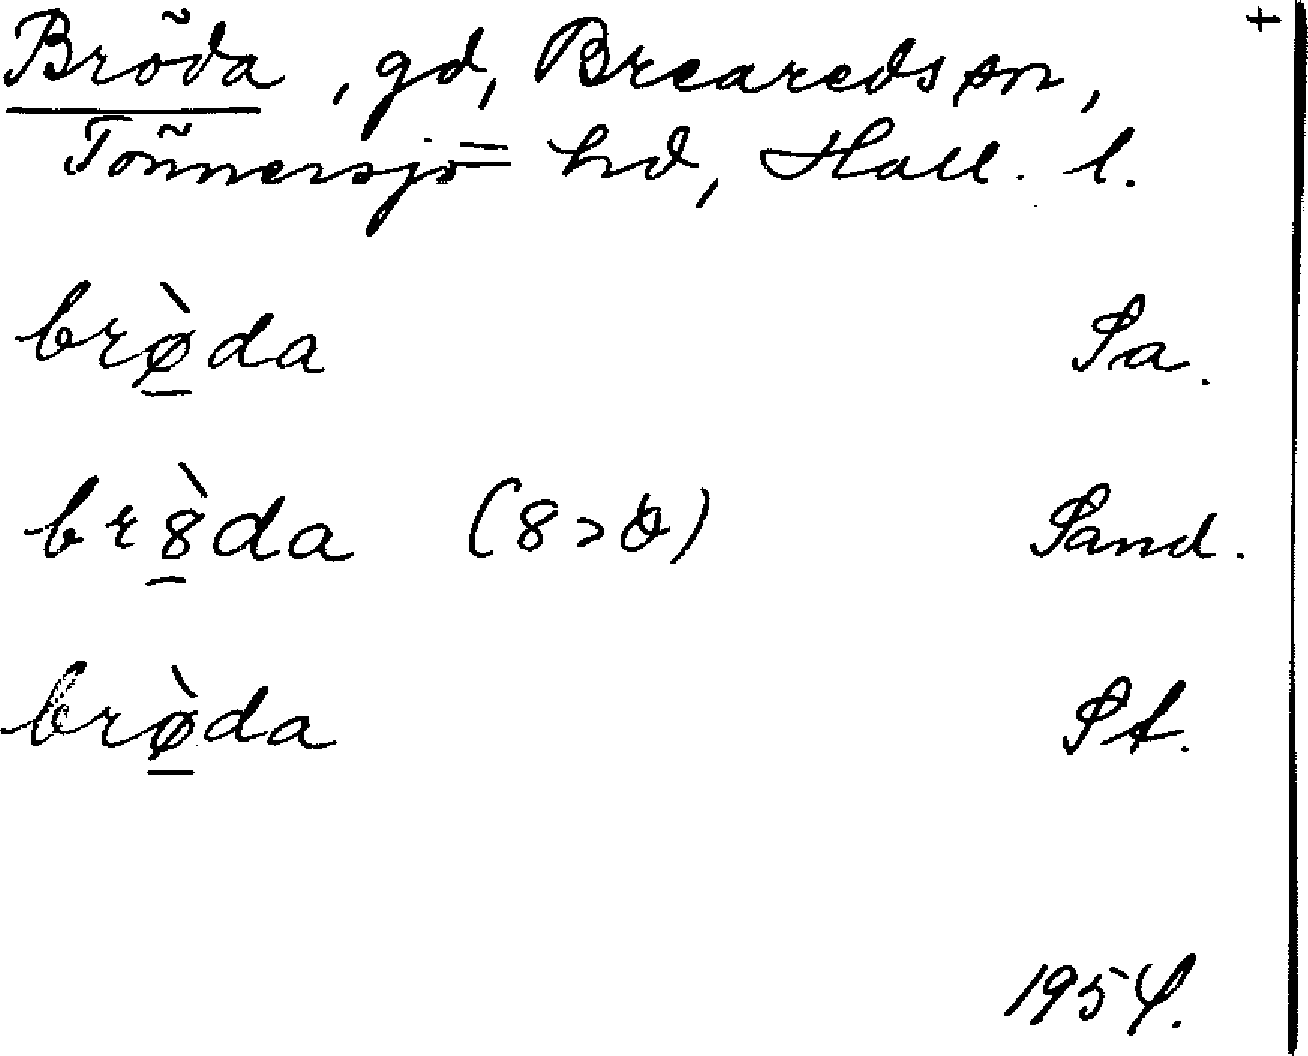 Bröda, gd, Breareds sn, +
Tönnersjö hd, Hall. l.
brø̀da Sa.
br8̀da (8>ꝋ) Sand.
brø̀da St.
1954.